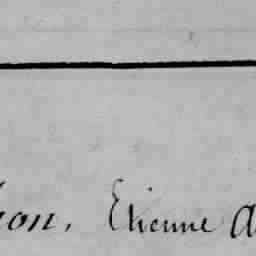 on, Etienne